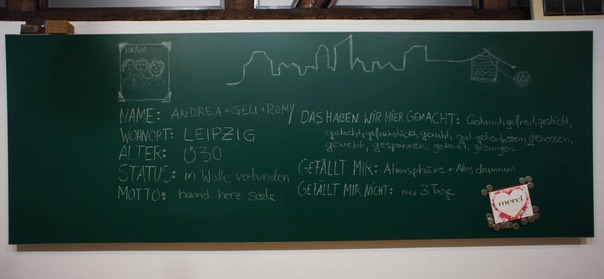 NAME: ANDREA+GELI+ROMY
WOHNORT: LEIPZIG
ALTER: Ü30
STATUS: in Wolle verbunden
MOTTO: hand herz seele
DAS HABEN WIR HIER GEMACHT: gefreut, gestrickt,
gelacht, gefrühstückt, gut gegessen, genossen,
gewebt, gesponnen, gesungen
GEFÄLLT MIR: Atmosphäre + Alles drumrum
GEFÄLLT MIR NICHT: nur 3 Tage
merci